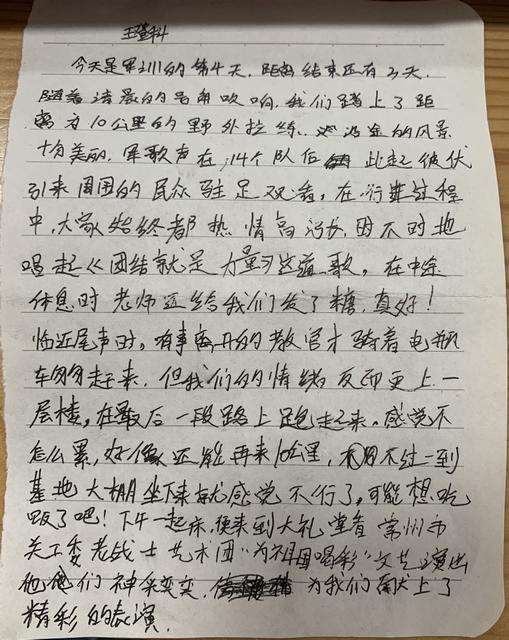 王登科
今天是军训的第4天,距离结束还有3天.
随着清晨的号角吹响,我们踏上了距
离为10公里的野外拉练,沿途的风景
十分美丽.军歌声在14个队伍此起彼伏
引来周围的民众驻足观看,在行进过程
中,大家始终都热情高涨,时不时地
唱起《团结就是力量》这首歌,在中途
休息时老师还给我们发了糖,真好!
临近尾声时,有事离开的教官才骑着电瓶
车匆匆赶来,但我们的情绪反而更上一
层楼,在最后一段路上跑起来,感觉不
怎么累,好像还能再来10公里,不过一到
基地大棚坐下来就感觉不行了,可能想吃
饭了吧!下午一起床,便来到大礼堂看常州市
关工委老战士艺术团"为祖国喝彩"文艺演出
他们神采奕奕,为我们献上了
精彩的表演.